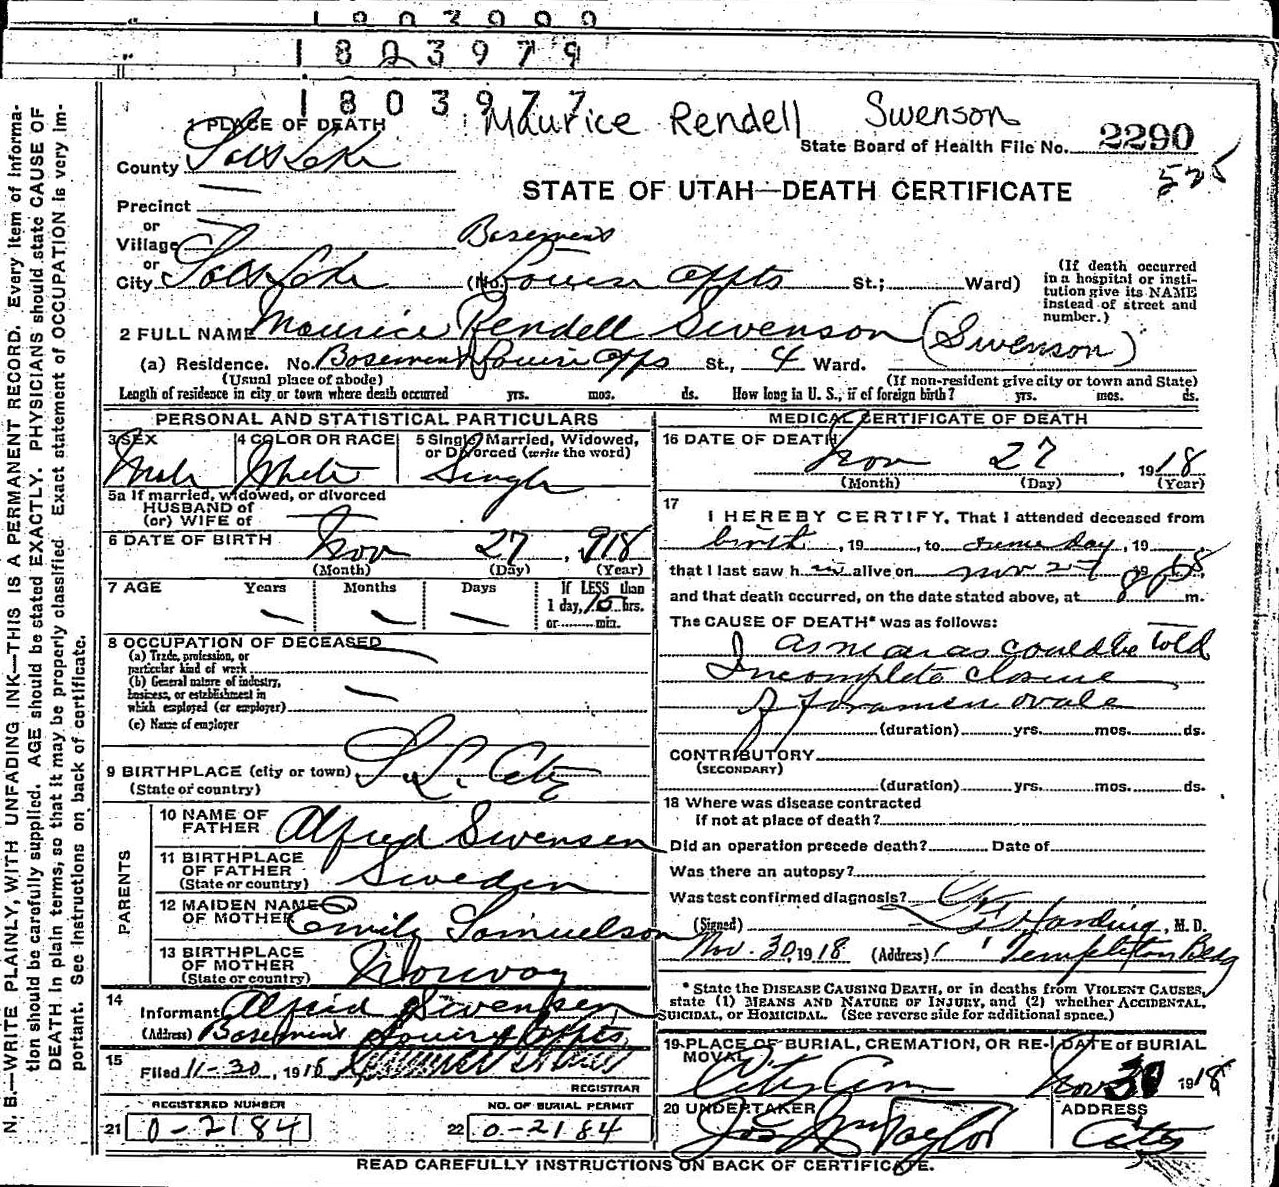 1803979
1803977
Maurice Rendell Swenson
1 PLACE OF DEATH
State Board of Health File No. 2290
County Salt Lake
STATE OF UTAH—DEATH CERTIFICATE
Precinct
or
Village
Basement
or
City Salt Lake (No. Louise Appts St.; Ward)
(If death occurred
in a hospital or insti-
tution give its NAME
instead of street and
number.)
2 FULL NAME Maurice Rendell Swenson (Swenson)
(a) Residence. No. Basement Louise Apps St., 4 Ward.
(Usual place of abode) (If non-resident give city or town and State)
Length of residence in city or town where death occurred yrs. mos. ds. How long in U. S., if of foreign birth? yrs. mos. ds.
PERSONAL AND STATISTICAL PARTICULARS
3 SEX 4 COLOR OR RACE 5 Single, Married, Widowed,
or Divorced (write the word)
Male White Single
5a If married, widowed, or divorced
HUSBAND of
(or) WIFE of
6 DATE OF BIRTH Nov 27, 918
(Month) (Day) (Year)
7 AGE Years Months Days If LESS than
1 day, 15 hrs.
or min.
8 OCCUPATION OF DECEASED
(a) Trade, profession, or
particular kind of work
(b) General nature of industry,
business, or establishment in
which employed (or employer)
(c) Name of employer
9 BIRTHPLACE (city or town) S. L. City
(State or country)
PARENTS
10 NAME OF
FATHER Alfred Swensen
11 BIRTHPLACE
OF FATHER
(State or country) Sweden
12 MAIDEN NAME
OF MOTHER Emily Samuelson
13 BIRTHPLACE
OF MOTHER
(State or country) Norway
14
Informant Alfred Swensen
(Address) Basement Louise Appts
15
Filed 11-30, 1918
REGISTRAR
REGISTERED NUMBER NO. OF BURIAL PERMIT
21 0-2184 22 0-2184
MEDICAL CERTIFICATE OF DEATH
16 DATE OF DEATH
Nov 27, 1918
(Month) (Day) (Year)
17
I HEREBY CERTIFY, That I attended deceased from
birth, 19, to same day, 19
that I last saw h im alive on Nov 27 1918,
and that death occurred, on the date stated above, at 8 P m.
The CAUSE OF DEATH* was as follows:
As near as could be told
Incomplete closure
of foramen ovale
(duration) yrs. mos. ds.
CONTRIBUTORY
(SECONDARY)
(duration) yrs. mos. ds.
18 Where was disease contracted
if not at place of death?
Did an operation precede death? Date of
Was there an autopsy?
Was test confirmed diagnosis?
(Signed) Harding, M. D.
Nov. 30, 1918 (Address) Templeton Bldg
* State the DISEASE CAUSING DEATH, or in deaths from VIOLENT CAUSES,
state (1) MEANS AND NATURE OF INJURY, and (2) whether ACCIDENTAL,
SUICIDAL, or HOMICIDAL. (See reverse side for additional space.)
19 PLACE OF BURIAL, CREMATION, OR RE- DATE OF BURIAL
MOVAL
City Cem Nov 30 1918
20 UNDERTAKER ADDRESS
Jos Wm Taylor City
READ CAREFULLY INSTRUCTIONS ON BACK OF CERTIFICATE.
N. B.—WRITE PLAINLY, WITH UNFADING INK—THIS IS A PERMANENT RECORD. Every item of informa-
tion should be carefully supplied. AGE should be stated EXACTLY. PHYSICIANS should state CAUSE OF
DEATH in plain terms, so that it may be properly classified. Exact statement of OCCUPATION is very im-
portant. See Instructions on back of certificate.